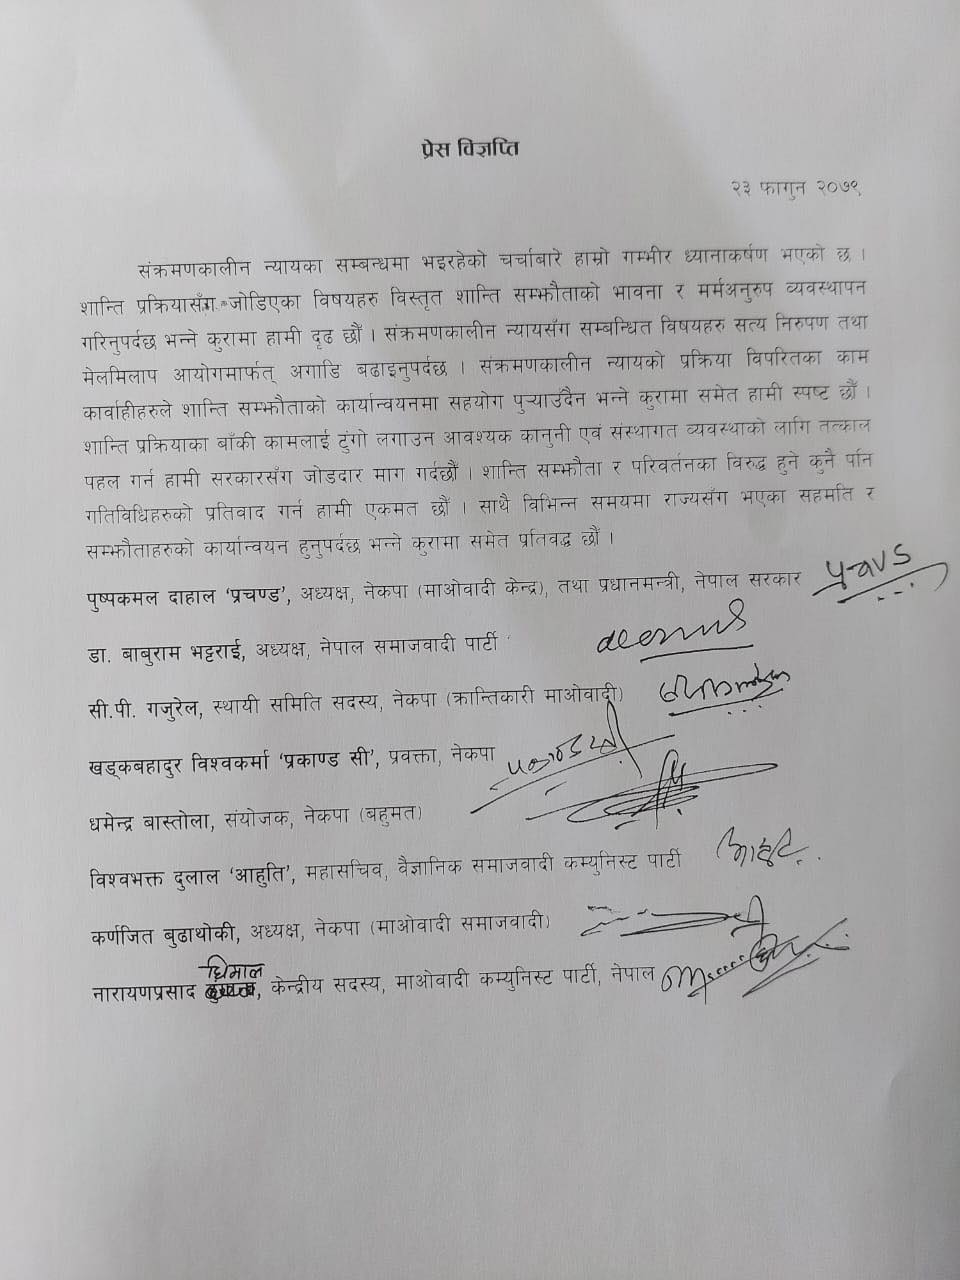 प्रेस विज्ञप्ति
२३ फागुन २०७९
संक्रमणकालीन न्यायका सम्बन्धमा भइरहेको चर्चाबारे हाम्रो गम्भीर ध्यानाकर्षण भएको छ ।
शान्ति प्रक्रियासँग जोडिएका विषयहरु विस्तृत शान्ति सम्झौताको भावना र मर्मअनुरुप व्यवस्थापन
गरिनुपर्दछ भन्ने कुरामा हामी दृढ छौं । संक्रमणकालीन न्यायसँग सम्बन्धित विषयहरु सत्य निरुपण तथा
मेलमिलाप आयोगमार्फत् अगाडि बढाइनुपर्दछ । संक्रमणकालीन न्यायको प्रक्रिया विपरितका काम
कार्वाहीहरुले शान्ति सम्झौताको कार्यान्वयनमा सहयोग पुऱ्याउँदैन भन्ने कुरामा समेत हामी स्पष्ट छौं ।
शान्ति प्रक्रियाका बाँकी कामलाई टुंगो लगाउन आवश्यक कानुनी एवं संस्थागत व्यवस्थाको लागि तत्काल
पहल गर्न हामी सरकारसँग जोडदार माग गर्दछौं । शान्ति सम्झौता र परिवर्तनका विरुद्ध हुने कुनै पनि
गतिविधिहरुको प्रतिवाद गर्न हामी एकमत छौं । साथै विभिन्न समयमा राज्यसँग भएका सहमति र
सम्झौताहरुको कार्यान्वयन हुनुपर्दछ भन्ने कुरामा समेत प्रतिवद्ध छौं ।
पुष्पकमल दाहाल 'प्रचण्ड', अध्यक्ष, नेकपा (माओवादी केन्द्र), तथा प्रधानमन्त्री, नेपाल सरकार
डा. बाबुराम भट्टराई, अध्यक्ष, नेपाल समाजवादी पार्टी
सी.पी. गजुरेल, स्थायी समिति सदस्य, नेकपा (क्रान्तिकारी माओवादी)
खड्कबहादुर विश्वकर्मा 'प्रकाण्ड सी', प्रवक्ता, नेकपा
धमेन्द्र बास्तोला, संयोजक, नेकपा (बहुमत)
विश्वभक्त दुलाल 'आहुति', महासचिव, वैज्ञानिक समाजवादी कम्युनिस्ट पार्टी आहुति
कर्णजित बुढाथोकी, अध्यक्ष, नेकपा (माओवादी समाजवादी)
धिमाल
नारायणप्रसाद , केन्द्रीय सदस्य, माओवादी कम्युनिस्ट पार्टी, नेपाल